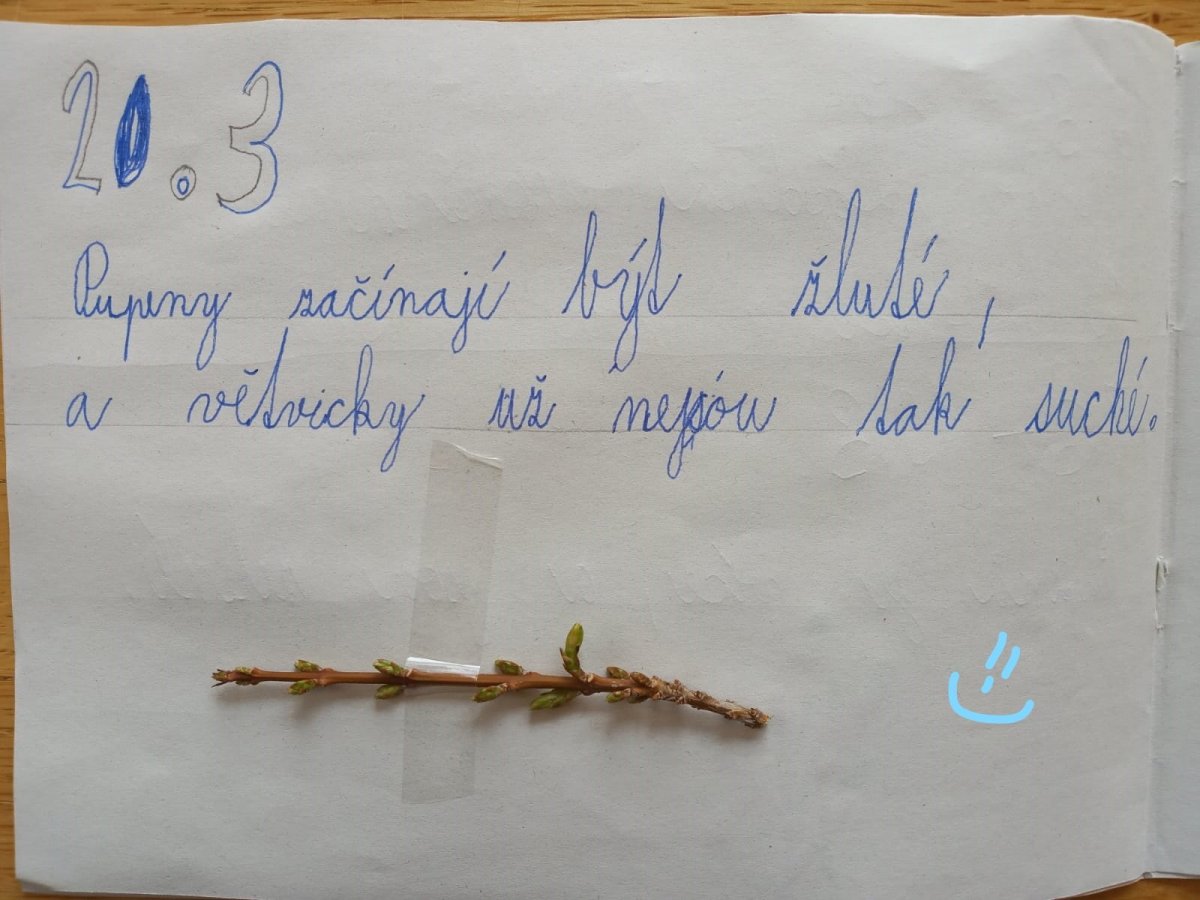 20.3
Pupeny začínají být žluté,
a větvicky už nejsóu tak suché.